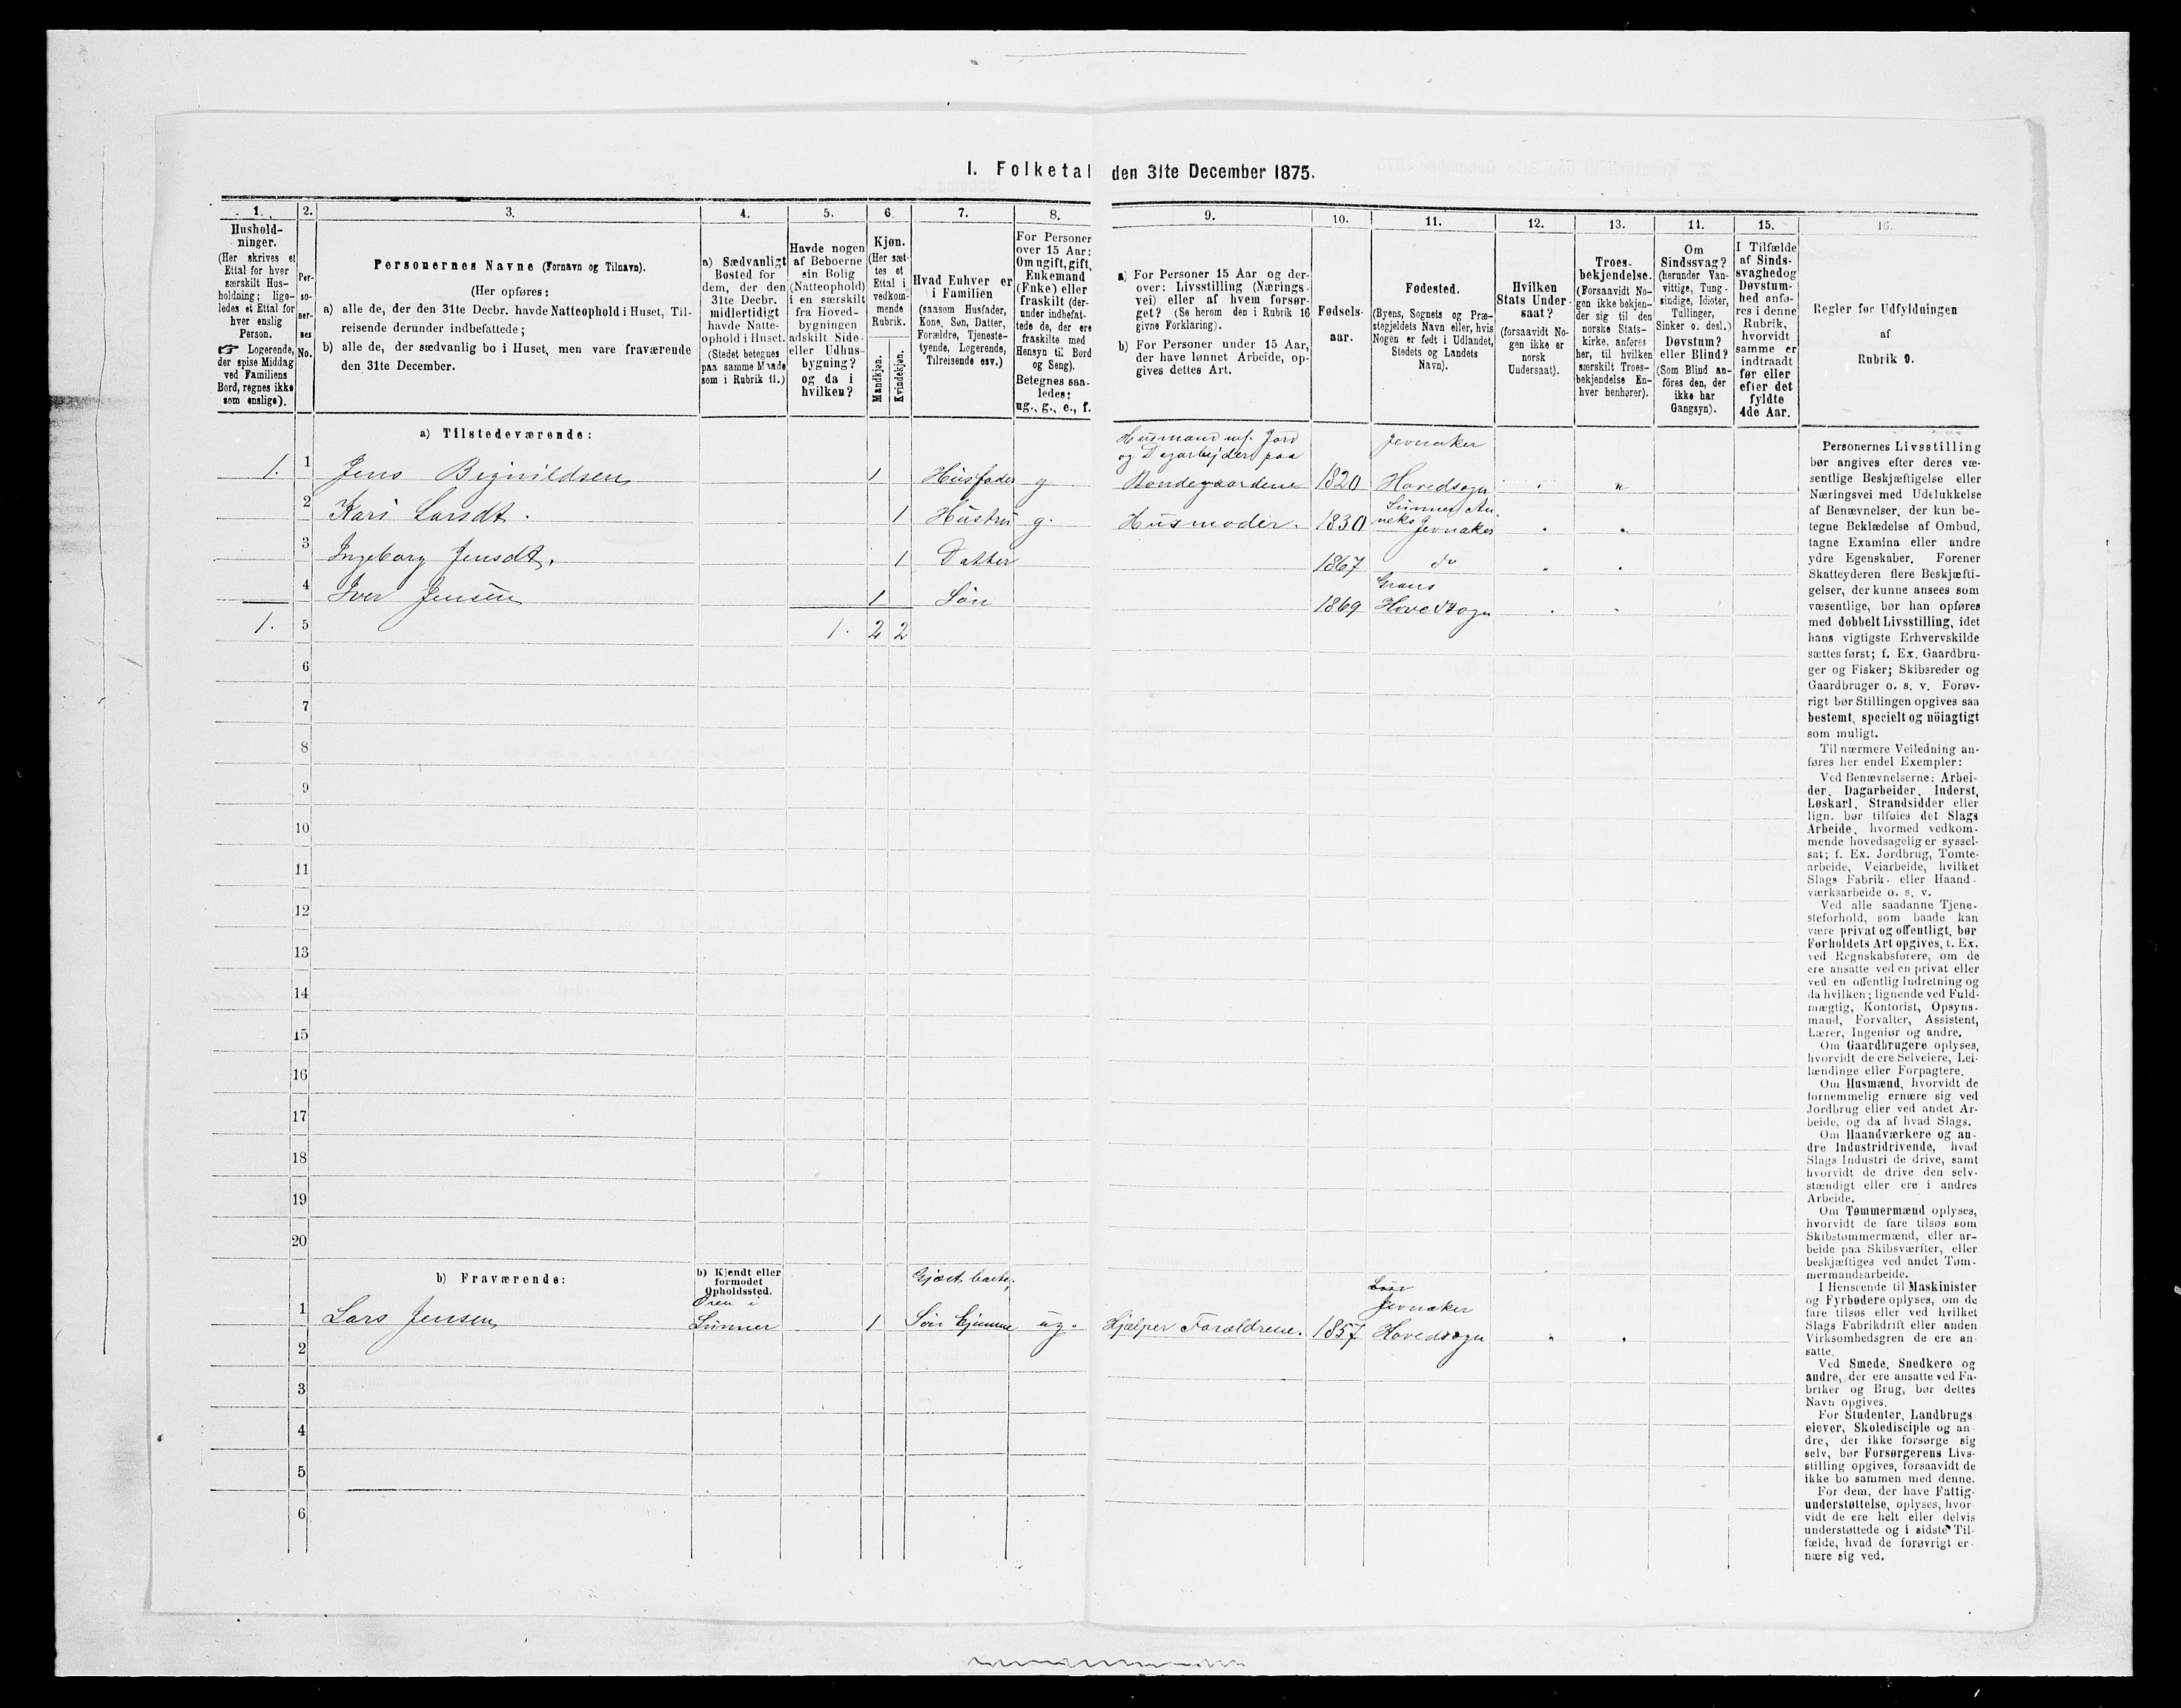 I. Folketal den 31te December 1875.
1.
Hushold-
ninger.
(Her skrives et
Ettal for hver
særskilt Hus-
holdning; lige-
ledes et Ettal for
hver enslig
Person.
☞ Logerende,
der spise Middag
ved Familiens
Bord, regnes ikke
som enslige).
2.
Per-
so-
ner-
nes
No.
3.
Personernes Navne (Fornavn og Tilnavn).
(Her opføres:
a) alle de, der den 31te Decbr. havde Natteophold i Huset, Til-
reisende derunder indbefattede;
b) alle de, der sædvanlig bo i Huset, men vare fraværende
den 31te December.
4.
a) Sædvanligt
Bosted for
dem, der den
31te Decbr.
midlertidigt
havde Natte-
ophold i Huset.
(Stedet betegnes
paa samme Maade
som i Rubrik 11.)
5.
Havde nogen
af Beboerne
sin Bolig
(Natteophold)
i en særskilt
fra Hoved-
bygningen
adskilt Side-
eller Udhus-
bygning?
og da i
hvilken?
6.
Kjøn.
(Her sæt-
tes et
Ettal i
vedkom-
mende
Rubrik.
Mandkjøn.
Kvindekjøn.
7.
Hvad Enhver er
i Familien
(saasom Husfader,
Kone, Søn, Datter,
Forældre, Tjeneste-
tyende, Logerende,
Tilreisende osv.)
8.
For Personer
over 15 Aar:
Om ugift, gift,
Enkemand
(Enke) eller
fraskilt (der-
under indbefat-
tede de, der ere
fraskilte med
Hensyn til Bord
og Seng).
Betegnes saa-
ledes:
ug., g., e., f.
9.
a) For Personer 15 Aar og der-
over: Livsstilling (Nærings-
vei) eller af hvem forsør-
get? (Se herom den i Rubrik 16
givne Forklaring).
b) For Personer under 15 Aar,
der have lønnet Arbeide, op-
gives dettes Art.
10.
Fødsels-
aar.
11.
Fødested.
(Byens, Sognets og Præ-
stegjeldets Navn eller, hvis
Nogen er født i Udlandet,
Stedets og Landets
Navn).
12.
Hvilken
Stats Under-
saat?
(forsaavidt No-
gen ikke er
norsk
Undersaat).
13.
Troes-
bekjendelse.
(Forsaavidt No-
gen ikke bekjen-
der sig til den
norske Stats-
kirke, anføres
her, til hvilken
særskilt Troes-
bekjendelse En-
hver henhører).
14.
Om
Sindssvag?
(herunder Van-
vittige, Tung-
sindige, Idioter,
Tullinger,
Sinker o. desl.)
Døvstum?
eller Blind?
(Som Blind an-
føres den, der
ikke har
Gangsyn).
15.
I Tilfælde
af Sinds-
svaghed og
Døvstum-
hed anfø-
res i denne
Rubrik,
hvorvidt
samme er
indtraadt
før eller
efter det
fyldte
4de Aar.
16.
Regler for Udfyldningen
af
Rubrik 9.
a) Tilstedeværende:
Husmand m/. Jord
og Dagarbejder paa
Jevnaker
1. 1 Jens Bignildsen 1 Husfader g Bondegaardene 1820 Hovedsogn
2 Kari Larsdt. 1 Hustru g. Husmoder. 1830
Lunner An.
neks Jevnaker
3 Ingeborg Jensdt. 1 Datter 1867 do
4 Iver Jensen 1 Søn 1869
Grans
Hovedsogn
1. 5 1. 2 2
6
7
8
9
10
11
12
13
14
15
16
17
18
19
20
b) Fraværende:
b) Kjendt eller
formodet
Opholdssted.
Jevnaker
1 Lars Jensen
Lunner 1 Søn hjemme ug. Hjelper Forældrene. 1857 Hovedsogn
2
3
4
5
6
Personernes Livsstilling
bør angives efter deres væ-
sentlige Beskjæftigelse eller
Næringsvei med Udelukkelse
af Benævnelser, der kun be-
tegne Beklædelse af Ombud,
tagne Examina eller andre
ydre Egenskaber. Forener
Skatteyderen flere Beskjæfti-
gelser, der kunne ansees som
væsentlige, bør han opføres
med dobbelt Livsstilling, idet
hans vigtigste Erhvervskilde
sættes først; f. Ex. Gaardbru-
ger og Fisker; Skibsreder og
Gaardbruger o. s. v. Forøv-
rigt bør Stillingen opgives saa
bestemt, specielt og nöiagtigt
som muligt.
Til nærmere Veiledning an-
føres her endel Exempler:
Ved Benævnelserne: Arbei-
der, Dagarbeider, Inderst,
Løskarl, Strandsidder eller
lign. bør tilføies det Slags
Arbeide, hvormed vedkom-
mende hovedsagelig er syssel-
sat; f. Ex. Jordbrug, Tomte-
arbeide, Veiarbeide, hvilket
Slags Fabrik- eller Haand-
værksarbeide o. s. v.
Ved alle saadanne Tjene-
steforhold, som baade kan
være privat og offentligt, bør
Forholdets Art opgives, t. Ex.
ved Regnskabsførere, om de
ere ansatte ved en privat eller
ved en offentlig Indretning og
da hvilken; lignende ved Fuld-
mægtig, Kontorist, Opsyns-
mand, Forvalter, Assistent,
Lærer, Ingeniør og andre.
Om Gaardbrugere oplyses,
hvorvidt de ere Selveiere, Lei-
lændinge eller Forpagtere.
Om Husmænd, hvorvidt de
fornemmelig ernære sig ved
Jordbrug eller ved andet Ar-
beide, og da af hvad Slags.
Om Haandværkere og an-
dre Industridrivende, hvad
Slags Industri de drive, samt
hvorvidt de drive den selv-
stændigt eller ere i andres
Arbeide.
Om Tømmermænd oplyses,
hvorvidt de fare tilsøs som
Skibstømmermænd, eller ar-
beide paa Skibsværfter, eller
beskjæftiges ved andet Tøm-
mermandsarbeide.
I Henseende til Maskinister
og Fyrbødere oplyses, om de
fare tilsøs eller ved hvilket
Slags Fabrikdrift eller anden
Virksomhedsgren de ere an-
satte.
Ved Smede, Snedkere og
andre, der ere ansatte ved Fa-
briker og Brug, bør dettes
Navn opgives.
For Studenter, Landbrugs-
elever, Skoledisciple og an-
dre, der ikke forsørge sig
selv, bør Forsørgerens Livs-
stilling opgives, forsaavidt de
ikke bo sammen med denne.
For dem, der have Fattig-
understøttelse, oplyses, hvor-
vidt de ere helt eller delvis
understøttede og i sidste Til-
fælde, hvad de forøvrigt er-
nære sig ved.